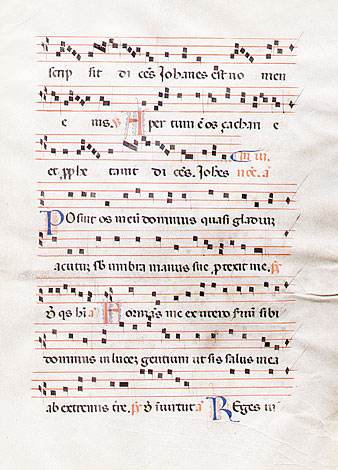 scrip sit di cēs Johanes est no men
e ius. ꝟ Aper tum ē os zachari e
et ꝓphe tauit di cēs. Johēs
POsuit os meū dominus quasi gladiū
acutū sb umbra manus sue ꝓtexit me.
Formās me ex utero ſuū sibi
dominus in lucē gentium ut sis salus mea
ab extremis tre. Dn̄ in uirtut a Reges ui